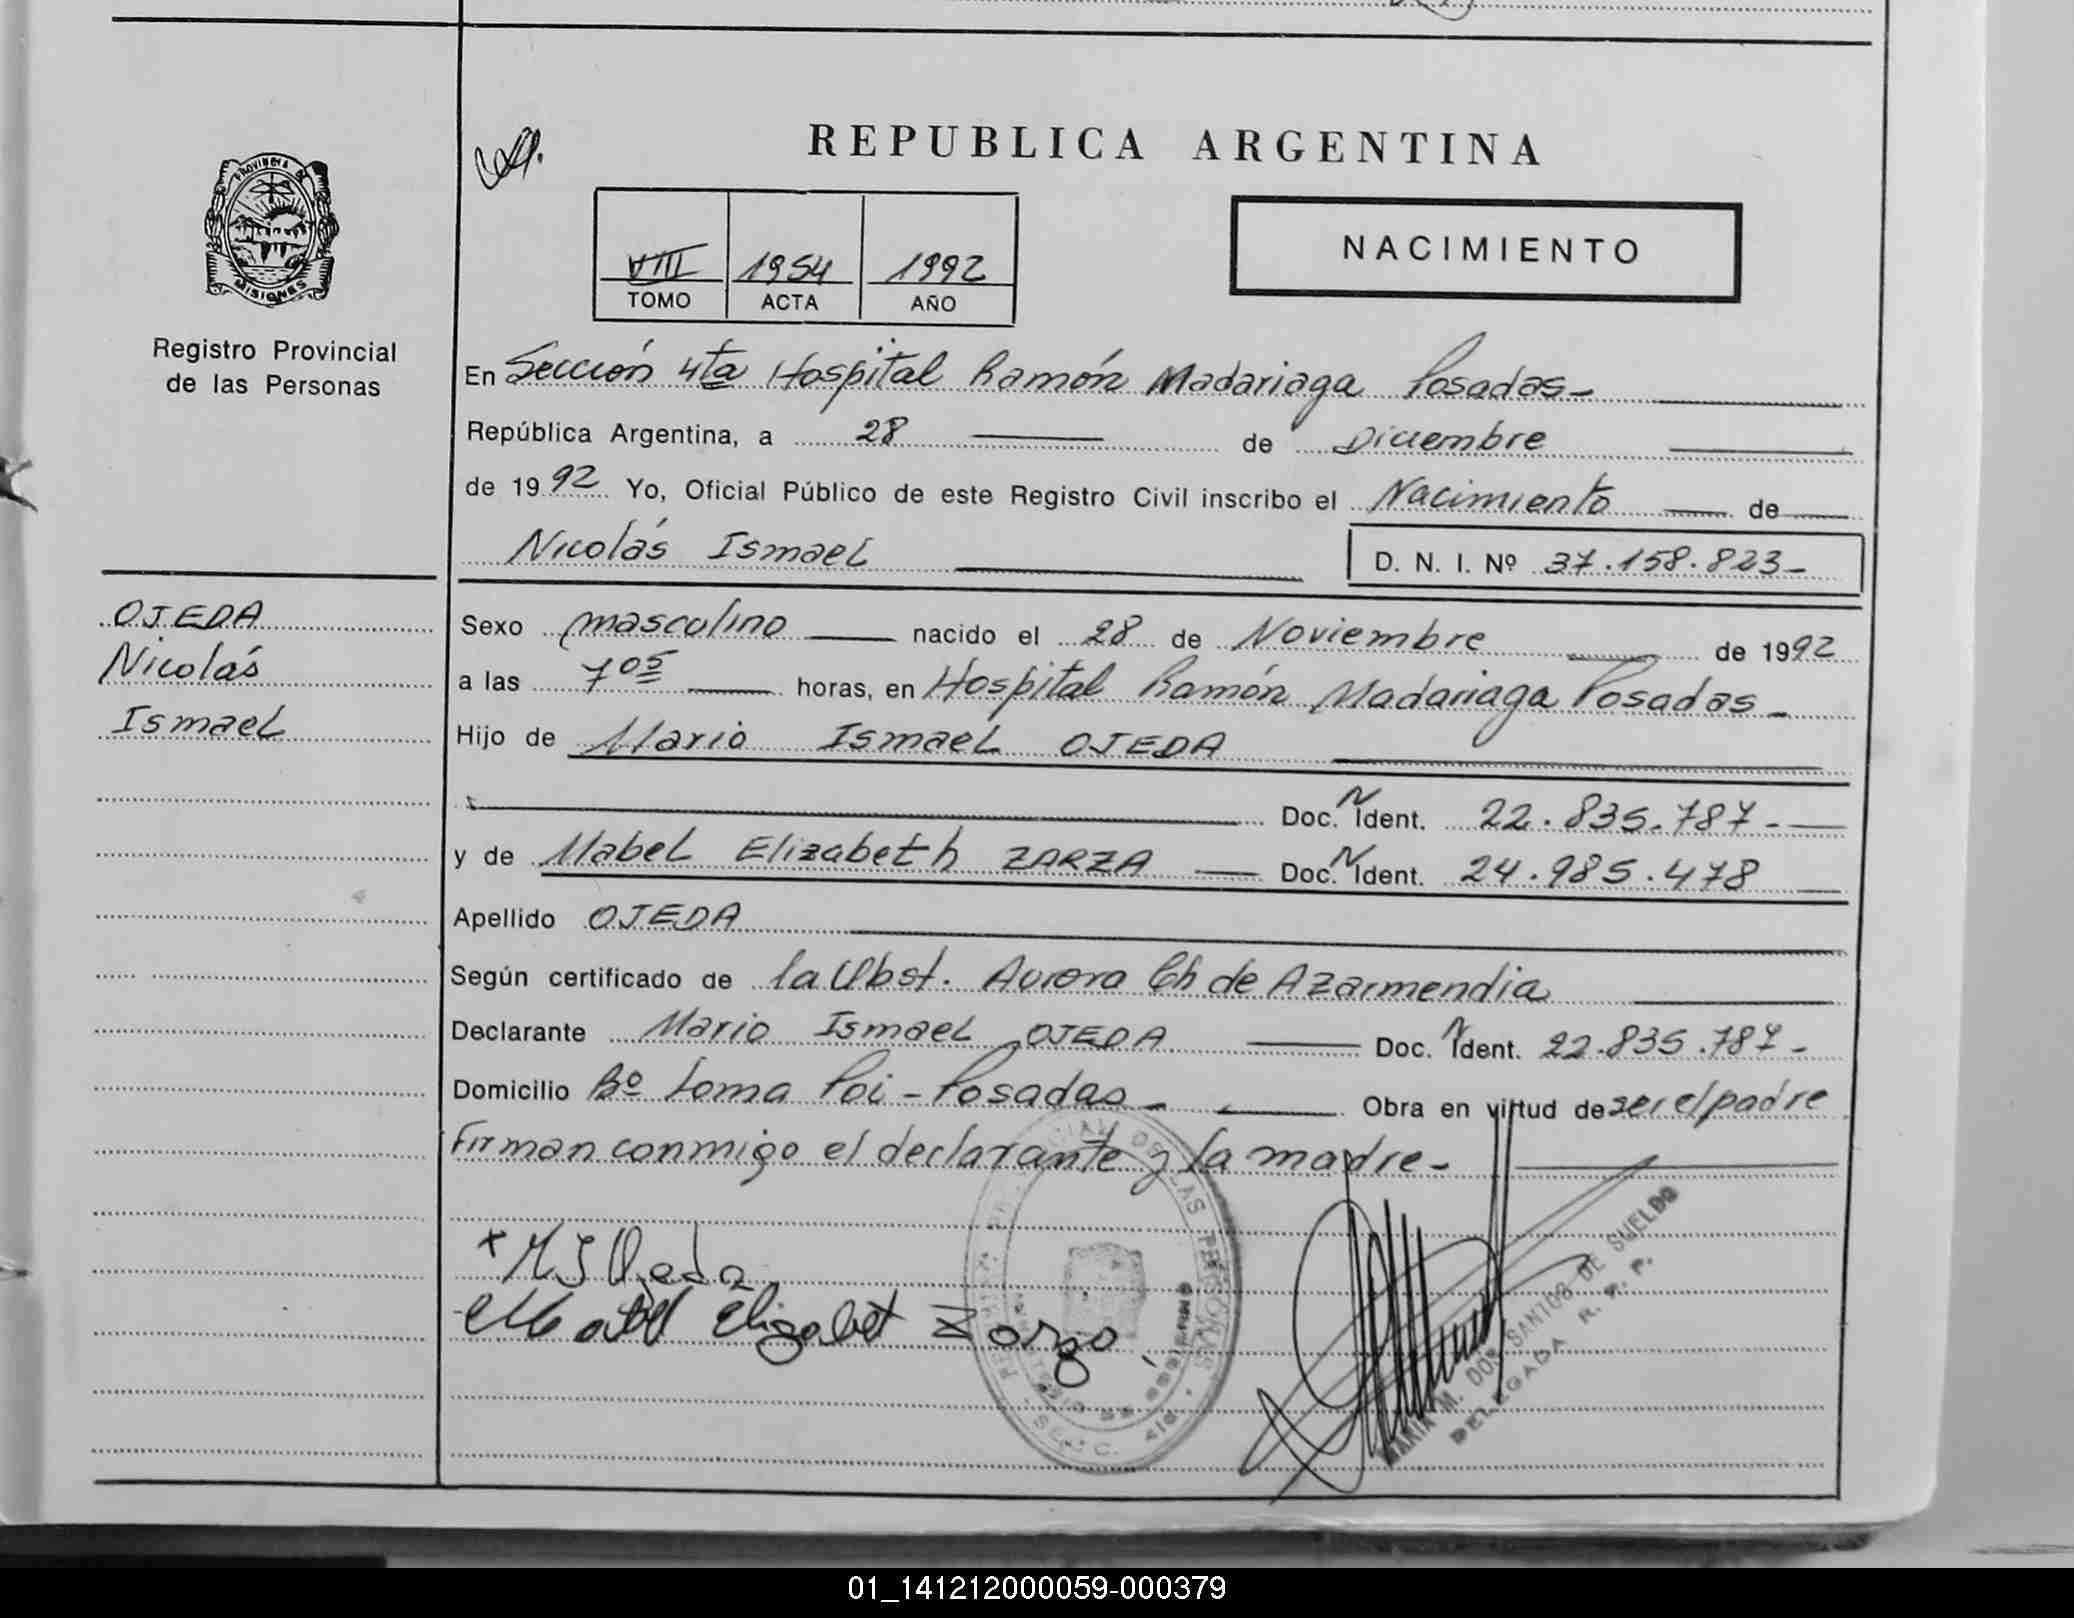 REPUBLICA ARGENTINA
PROVINCIA DE
MISIONES
Registro Provincial
de las Personas
VIII 1954 1992
TOMO ACTA AÑO
NACIMIENTO
En Sección 4ta Hospital Ramón Madariaga Posadas-
República Argentina, a 28 de Diciembre
de 1992 Yo, Oficial Público de este Registro Civil inscribo el Nacimiento de
Nicolás Ismael D. N. I. Nº 37.158.823-
OJEDA
Nicolás
Ismael
Sexo masculino nacido el 28 de Noviembre de 1992
a las 7 05 horas, en Hospital Ramón Madariaga Posadas-
Hijo de Mario Ismael OJEDA
Doc. N Ident. 22.835.787-
y de Mabel Elizabeth ZARZA Doc. N Ident. 24.985.478
Apellido OJEDA
Según certificado de la Obst. Aurora Ch de Azarmendia
Declarante Mario Ismael OJEDA Doc. N Ident. 22.835.787-
Domicilio Bº Loma Poi - Posadas- Obra en virtud de ser el padre
Firman conmigo el declarante y la madre-
x M I Ojeda
Mabel Elizabet Zarza
MARIA M. DOS SANTOS DE SUELDO
DELEGADA R. P. P.
01_141212000059-000379